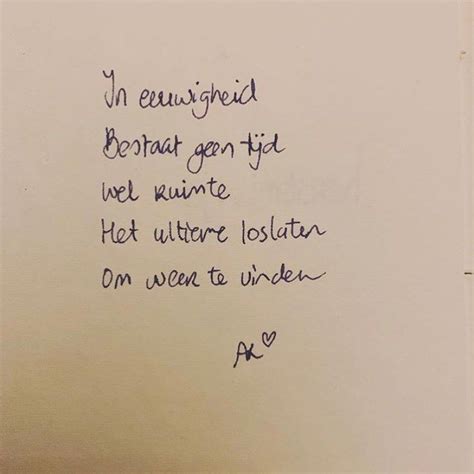 In eeuwigheid
Bestaat geen tijd
wel ruimte
Het ultieme loslaten
Om weer te vinden
AK♡